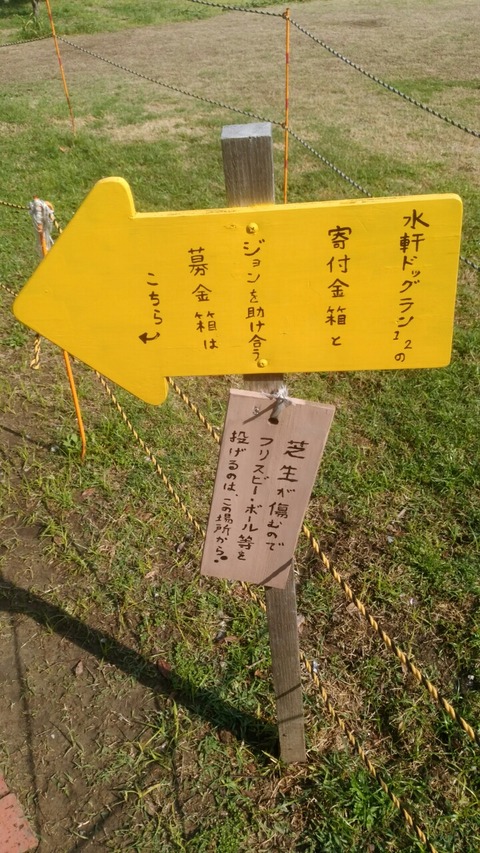 水軒ドッグラン1、2の
寄付金箱と
ジョンを助け合う
募金箱は
こちら
芝生が傷むので
フリスビー・ボール等を
投げるのは、この場所から。